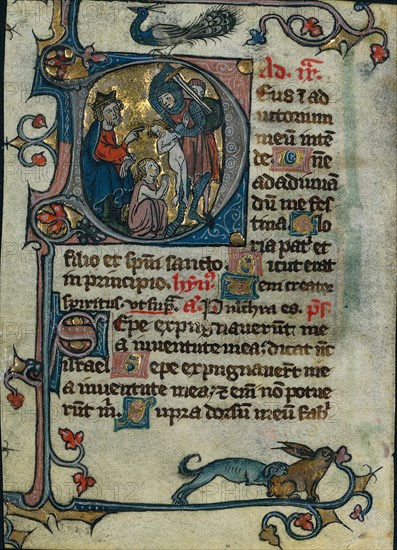 Ad. ix.
Deus i ad
iutorium
meū inte
de: Dñe
ad adiuuā
dū me fes
tina Glo
ria pat͛ et
filio et spūi sancto Sicut erat
in principio. hyn͛. Ueni creator
spiritus. ut sup͛. a͛. Pulchra es. p͛s.
Sepe expugnauerūt me
a iuuentute mea: dicat nc̄
israel Sepe expugnauer̄t me
a iuuentute mea; et em̄ nō potue
rūt m̄. Supra dorsū meū fab͛